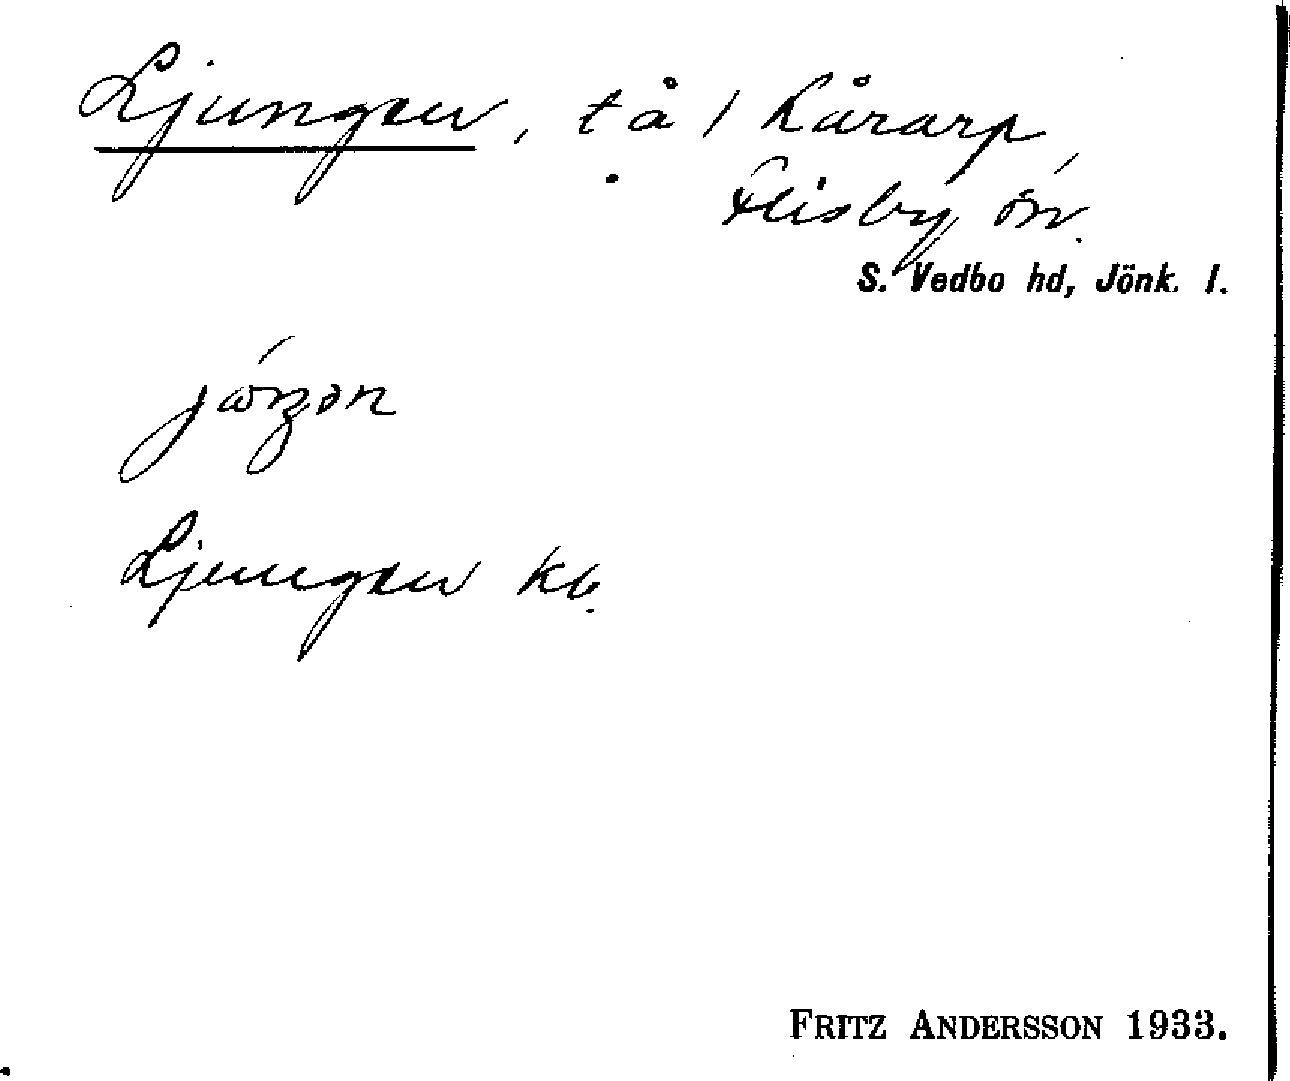 Ljungen, tå / Kårarp,
Flisby sn.
S. Vedbo hd, Jönk. l.
Ljungen kb.
FRITZ ANDERSSON 1933.